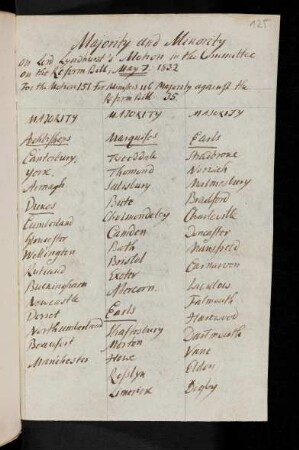 125
Majority and Minority
on Lord Lyndhurst's Motion in the Committee
on the Reform Bill, May 7. 1832
For the Motion 151 For Ministers 116 Majority against the
Reform Bill 35.
MAJORITY
Archbishops
Canterbury,
York.
Armagh
Dukes
Cumberland
Gloucester
Wellington
Rutland
Buckingham
Newcastle
Dorset
Northumberland
Beaufort
Manchester
MAJORITY
Marquisses
Tweeddale
Thomond
Salisbury
Bute
Cholmondeley
Camden
Bath
Bristol
Exeter
Abercorn.
Earls
Shaftesbury
Morton
Howe
Rosslyn
Limerick
MAJORITY
Earls
Shelbrone
Norwich
Malmesbury
Bradford
Charleville
Doncaster
Mansfield
Carnarvon
Falmouth
Harewood
Dartmouth
Vane
Eldon
Digby